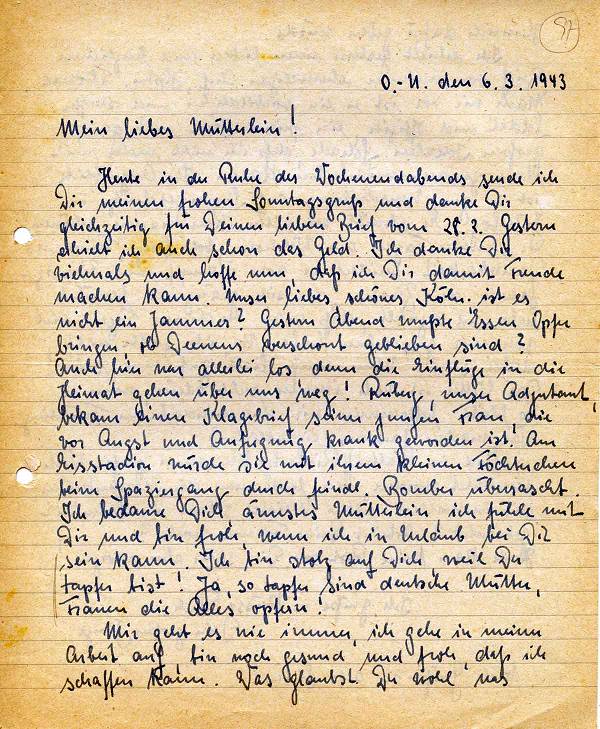 97
O.-U. den 6.3.1943
Mein liebes Mütterlein!
Heute in der Ruhe des Wochenendabends sende ich
Dir meinen frohen Sonntagsgruß und danke Dir
gleichzeitig für Deinen lieben Brief vom 28.2. Gestern
erhielt ich auch schon das Geld. Ich danke Dir
vielmals und hoffe nun, daß ich Dir damit Freude
machen kann. Unser liebes schönes Köln. ist es
nicht ein Jammer? Gestern Abend mußte Essen Opfer
bringen ob verschont geblieben sind?
Auch hier war allerlei los denn die Einflüge in die
Heimat gehen über uns weg! unser Adjutant,
bekam einen Klagebrief seiner jungen Frau, die
vor Angst und Aufregung krank geworden ist. Am
Eisstadion wurde sie mit ihrem kleinen Töchterchen
beim Spaziergang durch feindl. Bomber überrascht.
Ich bedaure Dich ärmstes Mütterlein ich fühle mit
Dir und bin froh, wenn ich in Urlaub bei Dir
sein kann. Ich bin stolz auf Dich, weil Du
tapfer bist! Ja, so tapfer sind deutsche Mütter,
Frauen die Alles opfern!
Mir geht es wie immer, ich gehe in meiner
Arbeit auf, bin noch gesund und froh, daß ich
schaffen kann. Was glaubst Du wohl was